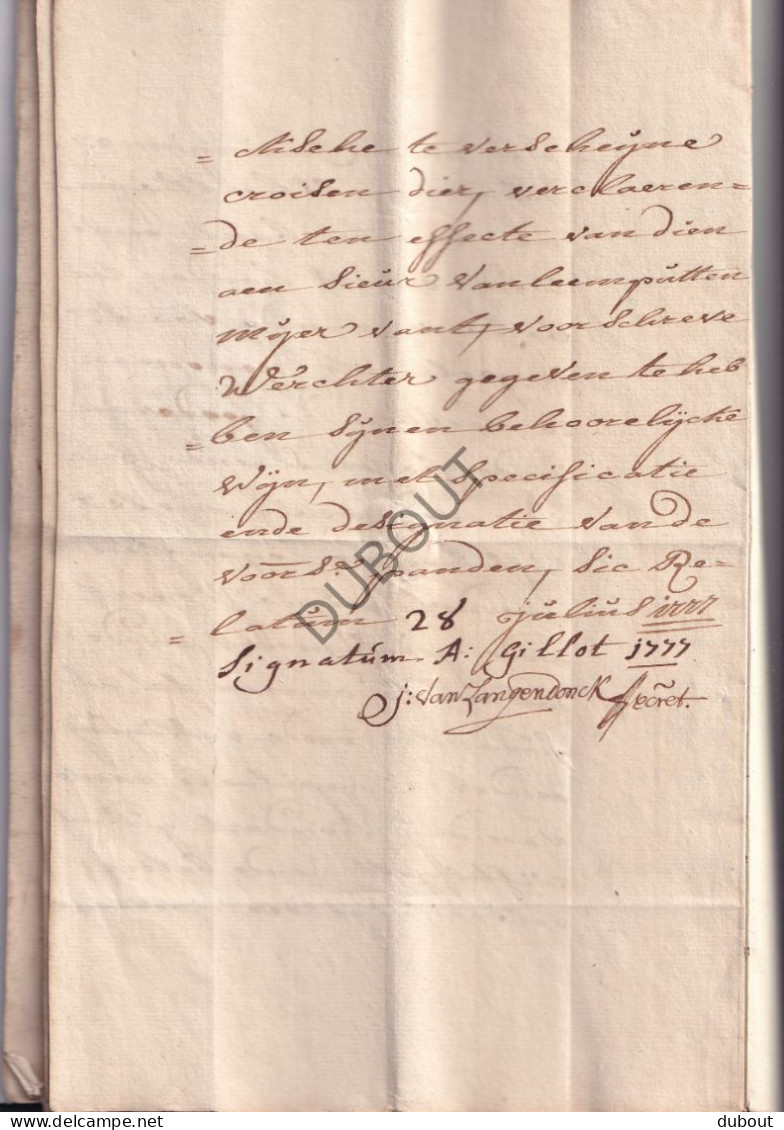 = Nische te verscheijne
croisen dier, verclaeren=
= de ten effecte van dien
aen Sieur Vanleemputten
Meijer vant, voorschreve
Werchter gegeven te heb
= ben Sijnen behoorelijcke
Wijn, met Specificatie
ende designatie van de
voors: panden, Sic Re=
= latum 28 julius 1777
Signatum A: Gillot 1777
j: Van Langendonck Secret.
DUBOUT
delcampe.net
dubout